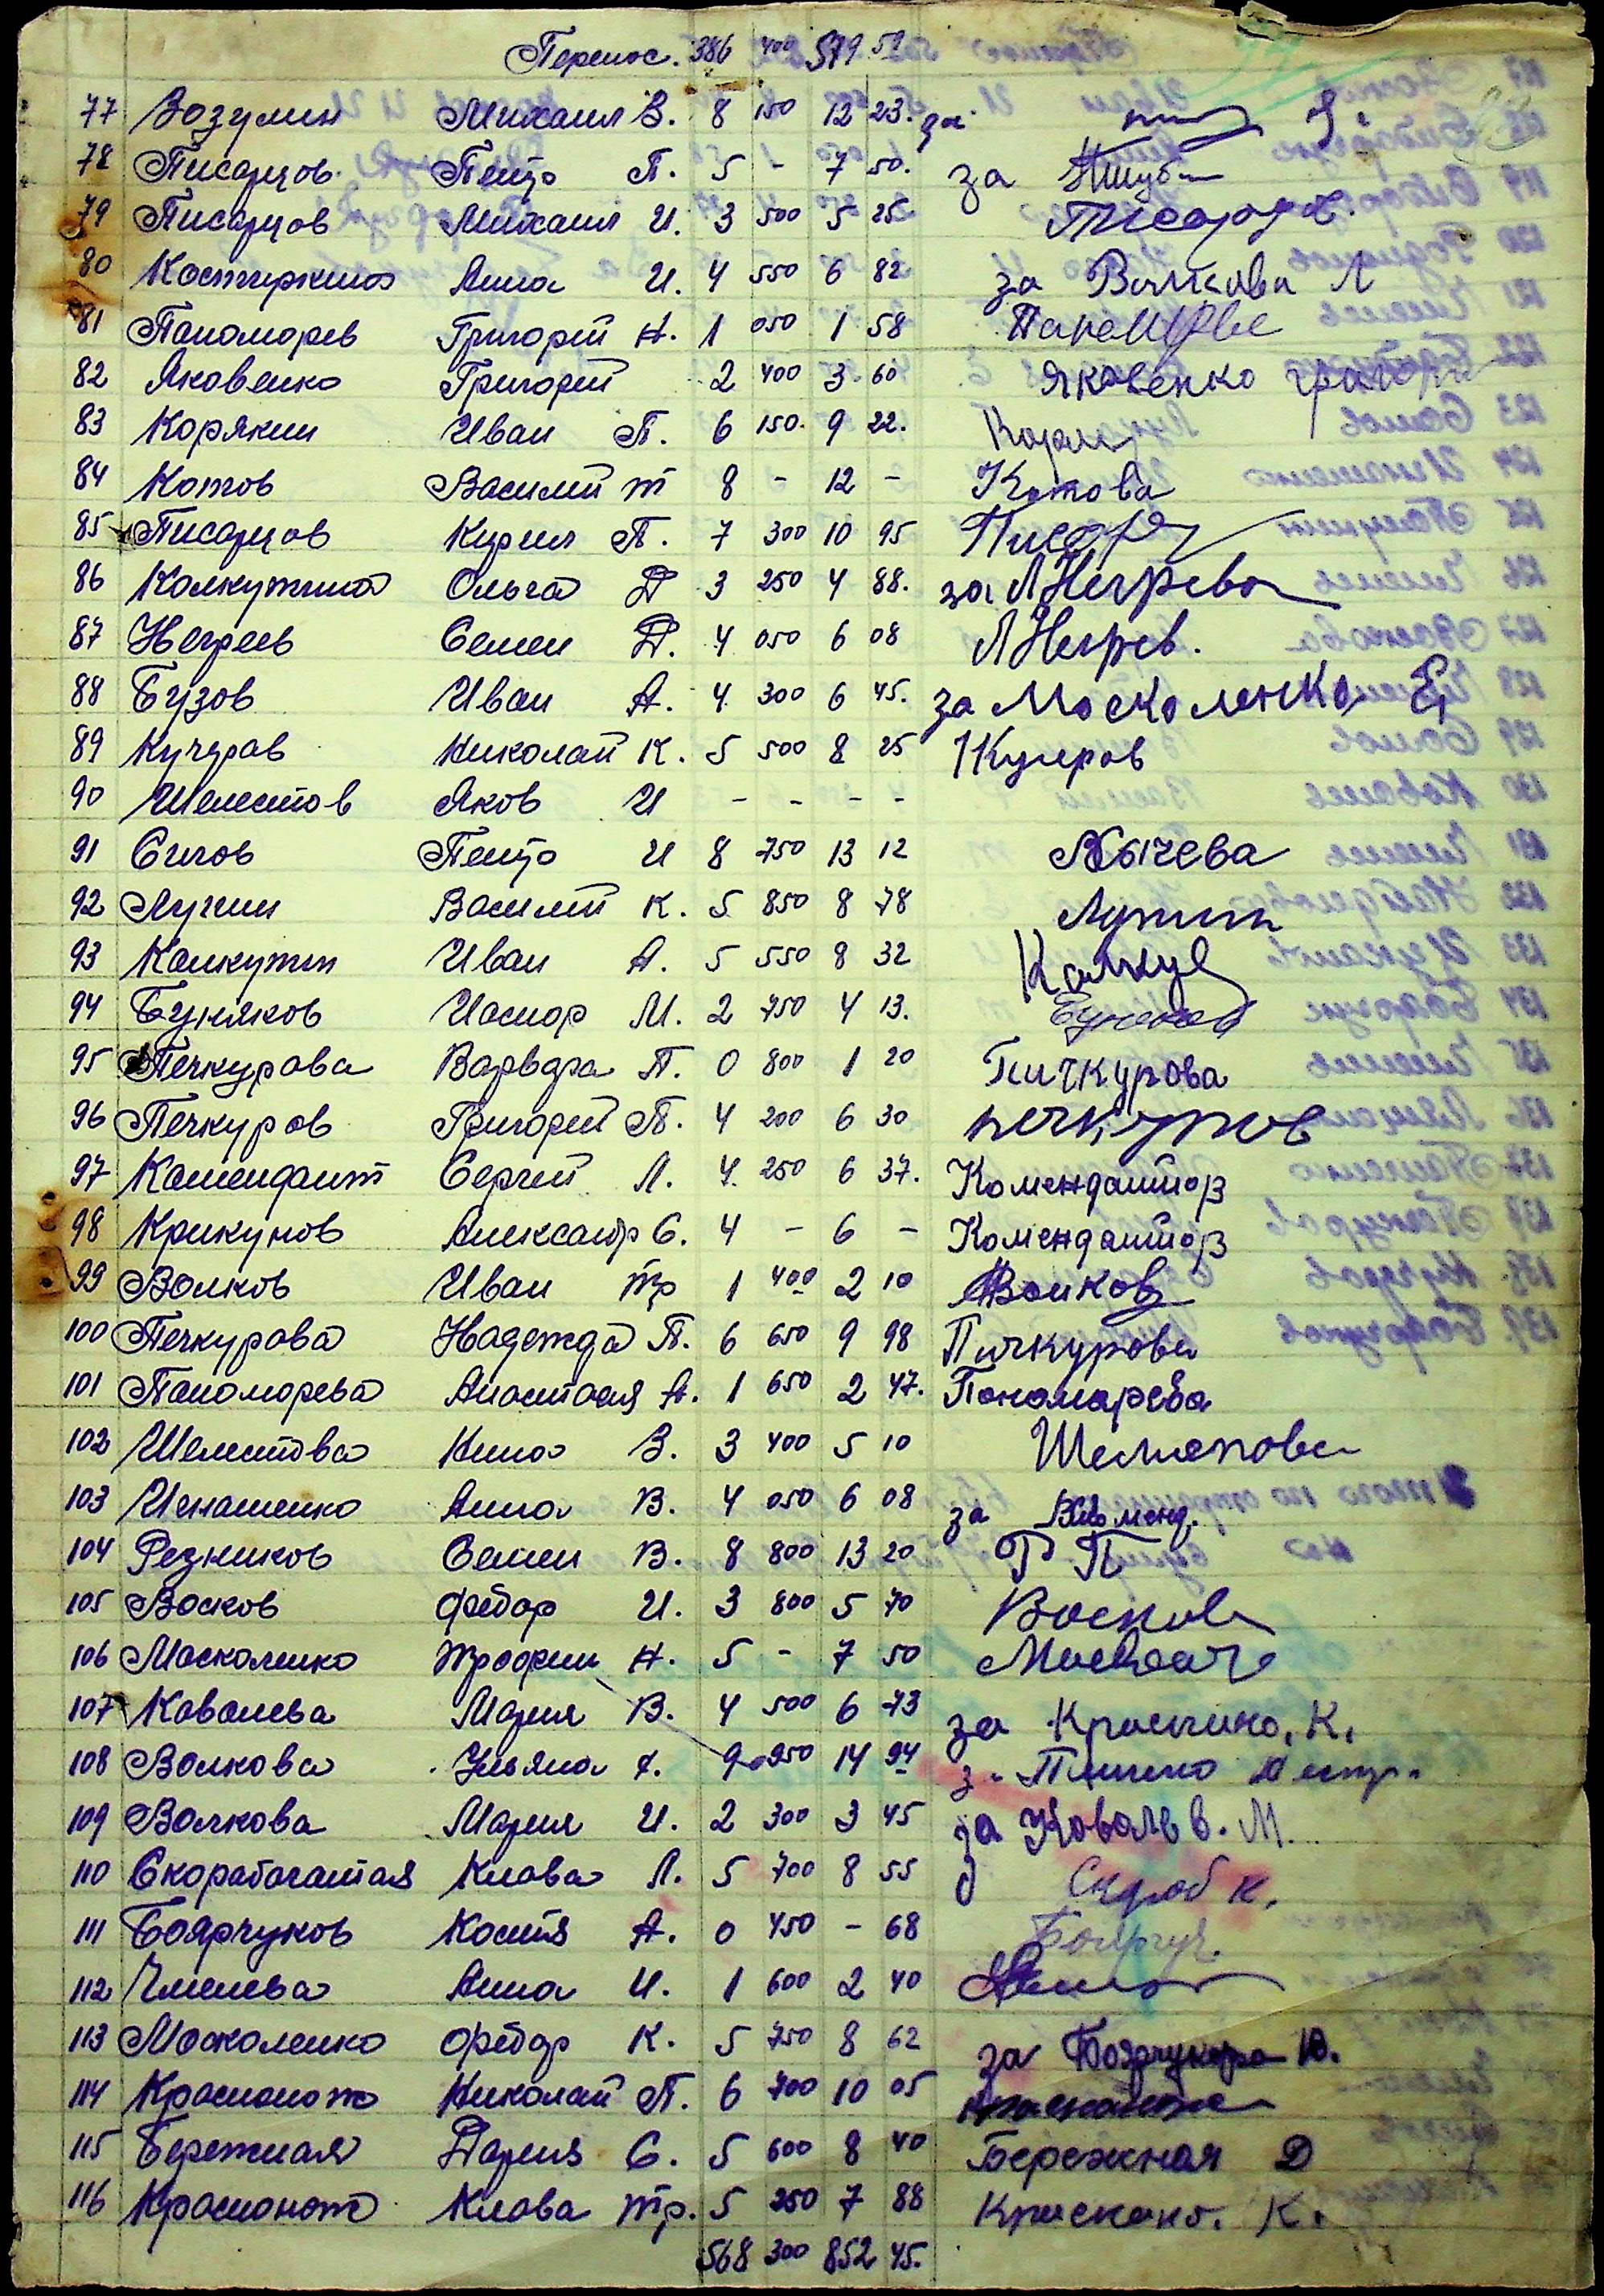 Перенос. 386 400 579 59
77 Возулин Михаил В. 8 150 12 23. за
78 Писарцов Петр П. 5 - 7 50. за
79 Писарцов Михаил И. 3 500 5 25
80 Костиркина Анна И. 4 550 6 82 за Волкова Л
81 Пономорев Григорий Н. 1 050 1 58
82 Яковенко Григорий 2 400 3 60 Яковенко
83 Корякин Иван П. 6 150. 9 22.
84 Котов Василий т 8 - 12 - Котова
85 Писарцов Кирил П. 7 300 10 95 Писар
86 Калкутина Ольга Д 3 250 4 88. за Л Негрева
87 Негреев Семен Д. 4 050 6 08 Л Негрев.
88 Бузов Иван А. 4 300 6 45. за Москоленко Е,
89 Кучеров Николай К. 5 500 8 25 Кучеров
90 Шелестов Яков И - - - -
91 Сычов Петр И 8 750 13 12 Сычева
92 Лучин Василий К. 5 850 8 78
93 Калкутин Иван А. 5 550 8 32 Калкуд
94 Буняков Иосиф М. 2 750 4 13.
95 Печкурова Варвара П. 0 800 1 20 Пичкурова
96 Печкуров Григорий П. 4 200 6 30 печкуров
97 Комендант Сергей Л. 4. 250 6 37.
98 Крикунов Александр С. 4 - 6 -
99 Волков Иван тр 1 400 2 10 Волков
100 Печкурова Надежда П. 6 650 9 98 Пичкурова
101 Пономорева Анастасия А. 1 650 2 47. Пономарева
102 Шелестова Нина В. 3 400 5 10
103 Игнашенко Анна В. 4 050 6 08 за
104 Резников Семен В. 8 800 13 20 Р П
105 Восков Федор И. 3 800 5 70 Воскова
106 Москоленко Трофим Н. 5 - 7 50
107 Ковалева Мария В. 4 500 6 73 за К,
108 Волкова Ульяна 9 950 14 94
109 Волкова Мария И. 2 300 3 45 за Ковалев. М.
110 Скоробогатая Клава Л. 5 700 8 55 Скороб К.
111 Боярчуков Костя А. 0 450 - 68 Боярчу.
112 Чмелева Анна И. 1 600 2 40
113 Москоленко Федор К. 5 750 8 62 за Боярчукова
114 Красионож Николай П. 6 700 10 05
115 Бережная Дария С. 5 600 8 40 Бережная Д
116 Красионож Клава тр. 5 250 7 88 К.
568 300 852 45.